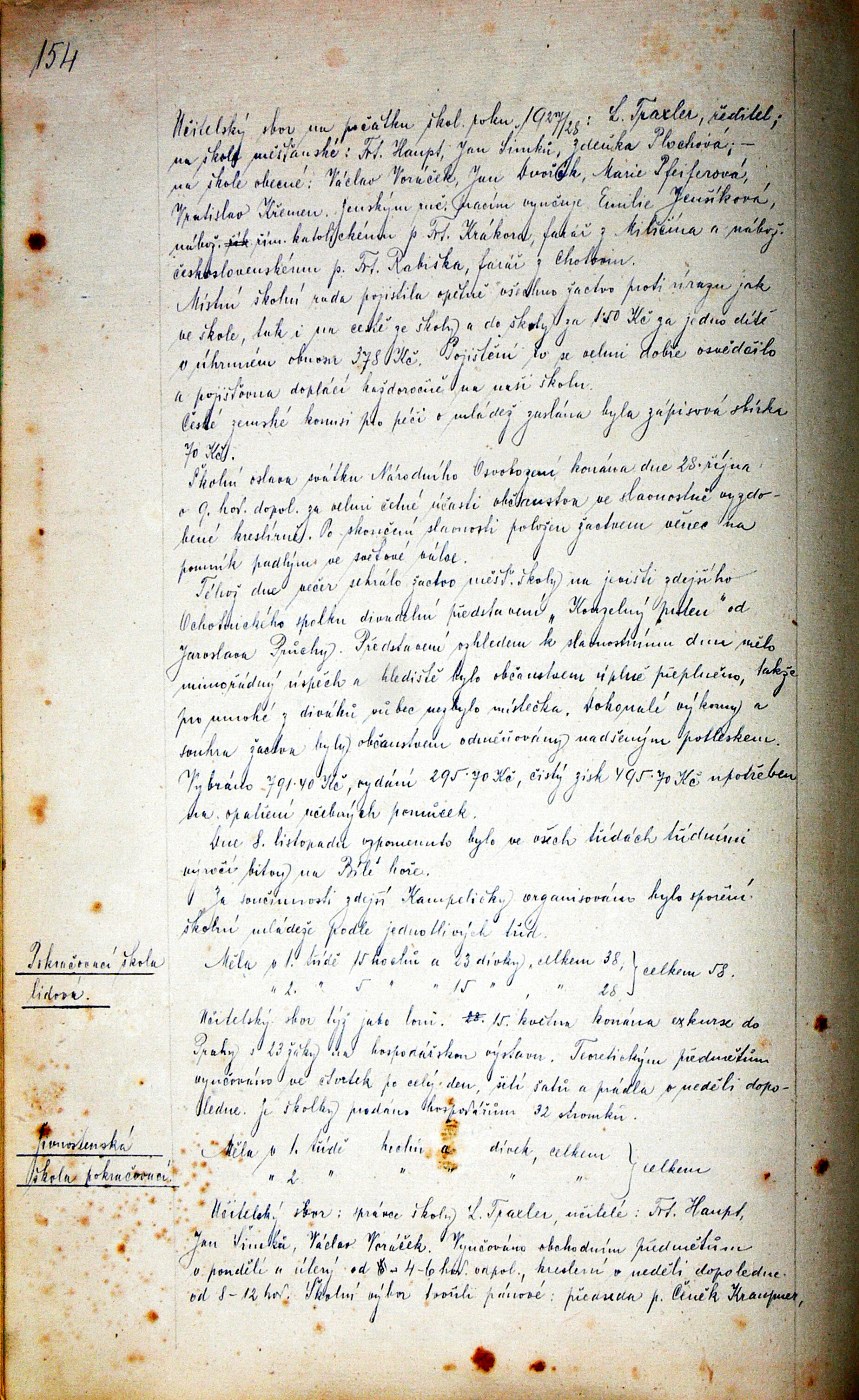 154
Učitelský sbor na počátku škol. roku 1927/28: L. Traxler, ředitel;
na škole měšťanské: Frt. Haupt, Jan Šimků, Zdeňka Plochová; —
na škole obecné: Václav Voráček, Jan Dvořák, Marie Pfeiferová,
Vratislav Křemen. Ženským ruč. pracím vyučuje Emilie Jensíková,
nábož. řím. katolickému p. Frt. Krákora, farář z Miličína a nábož.
československému p. Frt. Rabiška, farář z Chotovin.
Místní školní rada pojistila opětně všechno žactvo proti úrazu jak
ve škole, tak i na cestě ze školy a do školy za 1·50 Kč za jedno dítě
v úhrnném obnosu 378 Kč. Pojištění to se velmi dobře osvědčilo
a pojišťovna doplácí každoročně na naši školu.
České zemské komisi pro péči o mládež zaslána byla zápisová sbírka
70 Kč.
Školní oslava svátku Národního Osvobození konána dne 28. října
o 9. hod. dopol. za velmi četné účasti občanstva ve slavnostně vyzdo-
bené kreslírně. Po skončení slavnosti položen žactvem věnec na
pomník padlým ve světové válce.
Téhož dne večer sehrálo žactvo měšť. školy na jevišti zdejšího
Ochotnického spolku divadelní představení „Kouzelný prsten" od
Jaroslava Průchy. Představení vzhledem k slavnostnímu dnu mělo
mimořádný úspěch a hlediště bylo občanstvem úplně přeplněno, takže
pro mnohé z diváků vůbec nezbylo místečka. Dokonalé výkony a
souhra žactva byly občanstvem odměňovány nadšeným potleskem.
Vybráno 791·40 Kč, vydání 295·70 Kč, čistý zisk 495·70 Kč upotřeben
na opatření učebných pomůcek.
Dne 8. listopadu vzpomenuto bylo ve všech třídách třídními
výročí bitvy na Bílé hoře.
Za součinnosti zdejší Kampeličky organisováno bylo spoření
školní mládeže podle jednotlivých tříd.
Pokračovací škola
lidová.
Měla v 1. třídě 15 hochů a 23 dívky, celkem 38, } celkem 58.
" 2. " 5 " " 15 " , " 28
Učitelský sbor týž jako loni. 15. května konána exkurse do
Prahy s 23 žáky na hospodářskou výstavu. Teoretickým předmětům
vyučováno ve čtvrtek po celý den, šití šatů a prádla v neděli dopo-
ledne. Ze školky prodáno hospodářům 32 stromků.
Živnostenská
škola pokračovací
Měla v 1. třídě hochů a dívek, celkem } celkem
" 2 " " " " "
Učitelský sbor: správce školy L. Traxler, učitelé: Frt. Haupt,
Jan Šimků, Václav Voráček. Vyučováno obchodním předmětům
v pondělí a úterý od 4–6 hod. odpol., kreslení v neděli dopoledne
od 8–12 hod. Školní výbor tvořili pánové: předseda p. Čeněk Kraupner,